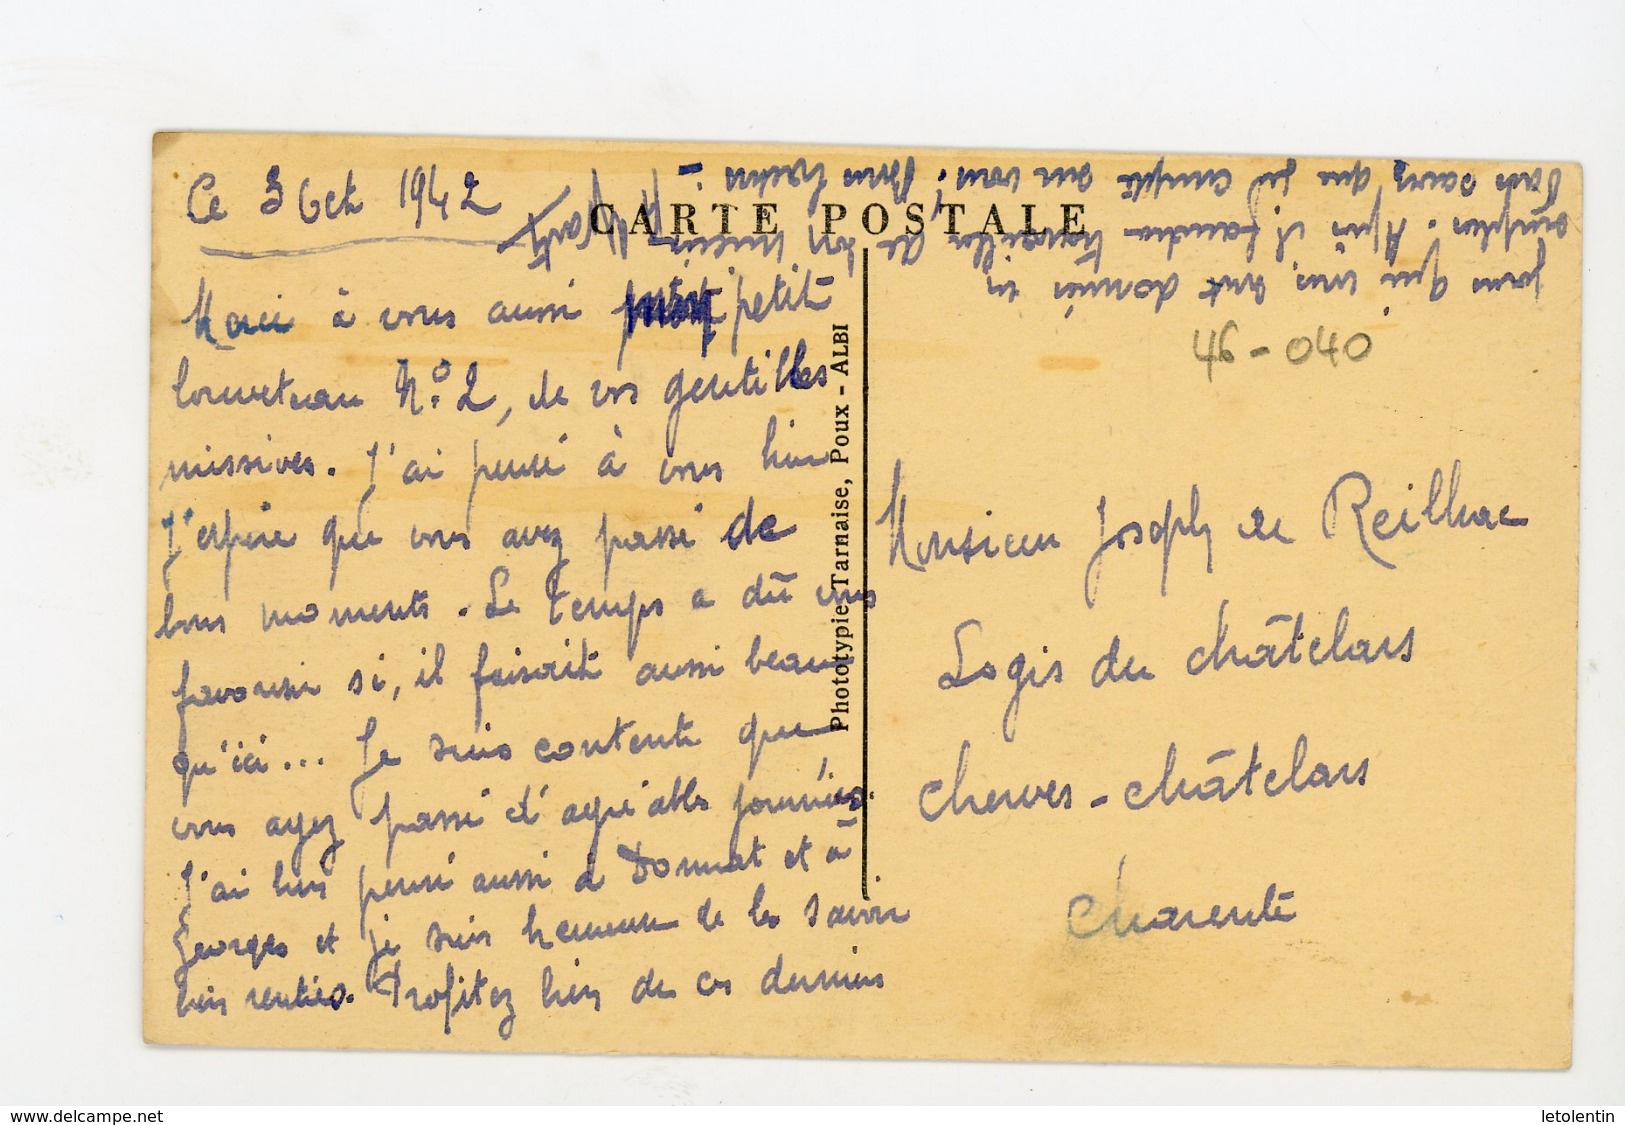 Ce 3 Oct 1942
CARTE POSTALE
Merci à vous aussi petit
louveteau N°2, de vos gentilles
missives. J'ai pensé à vous hier
J'espère que vous avez passé de
bons moments. Le temps a dû vous
favoriser si, il faisait aussi beau
qu'ici... Je suis contente que
vous ayez passé d'agréables journées.
J'ai bien pensé aussi à Donnat et à
Georges et je suis heureuse de les savoir
bien rentrés. Profitez bien de ces derniers
jours qui vous sont donnés en
surplus. Après il faudra travailler de son mieux
Vous savez que j'ai compté sur vous!
Phototypie Tarnaise, Poux - ALBI
46-040
Monsieur Joseph de Reilhac
Logis du Châtelars
Cherves-Châtelars
Charente
www.delcampe.net
letolentin